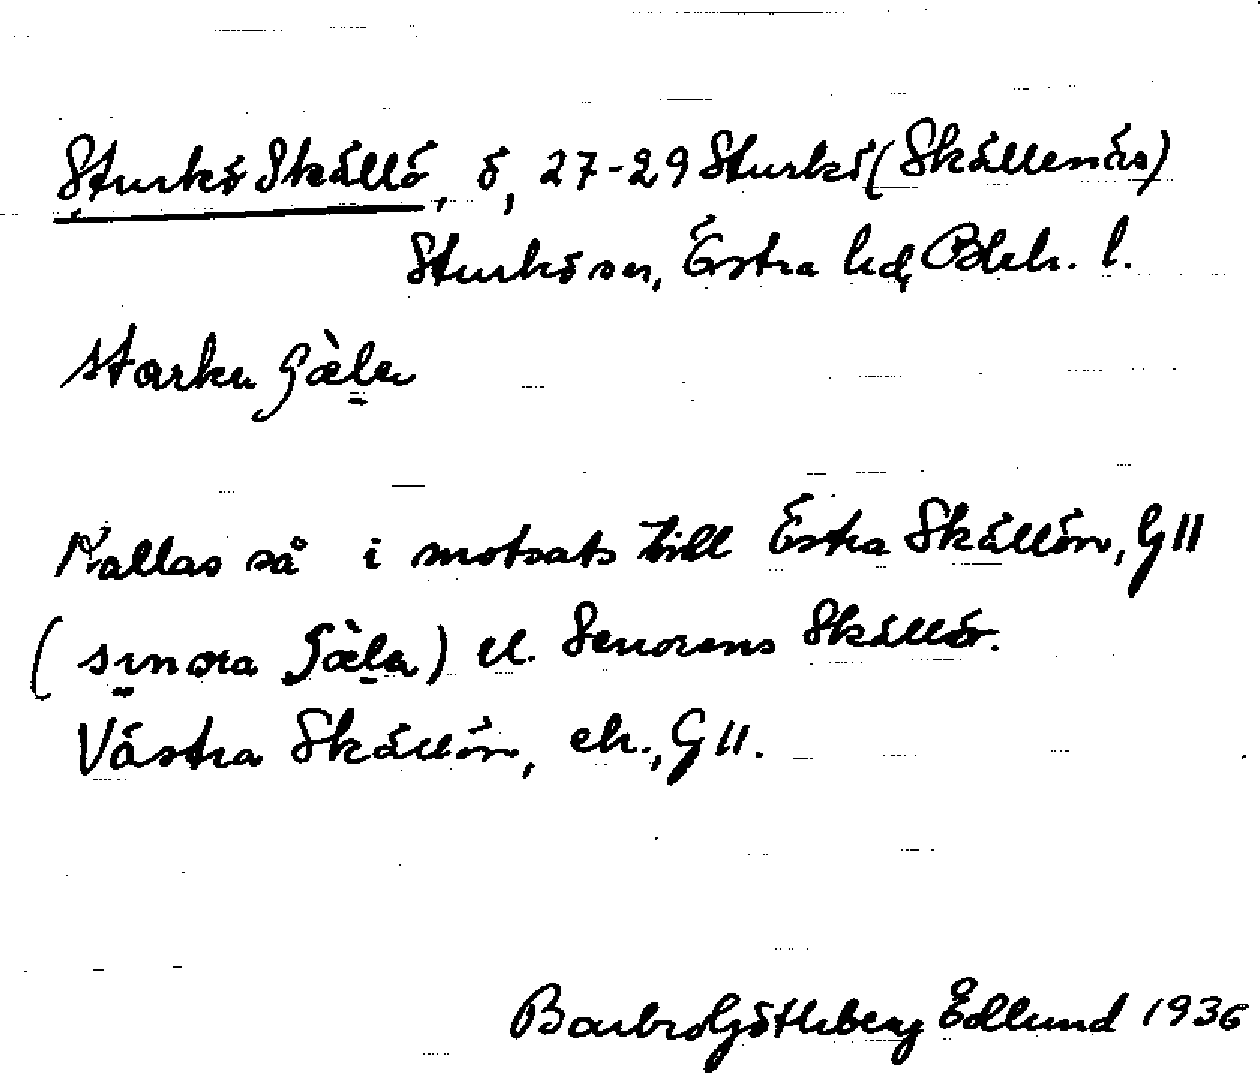 Sturkö Skällö, ö, 27-29 Sturkö (Skällenäs)
Sturkö sn, Östra hd, Blek. l.
starku ʃàla
Kallas så i motsats till Östra Skällön, GII
(sunora ʃàla) el. Senorens Skällö.
Västra Skällön, ek., GII.
Barbro Götheberg Edlund 1936